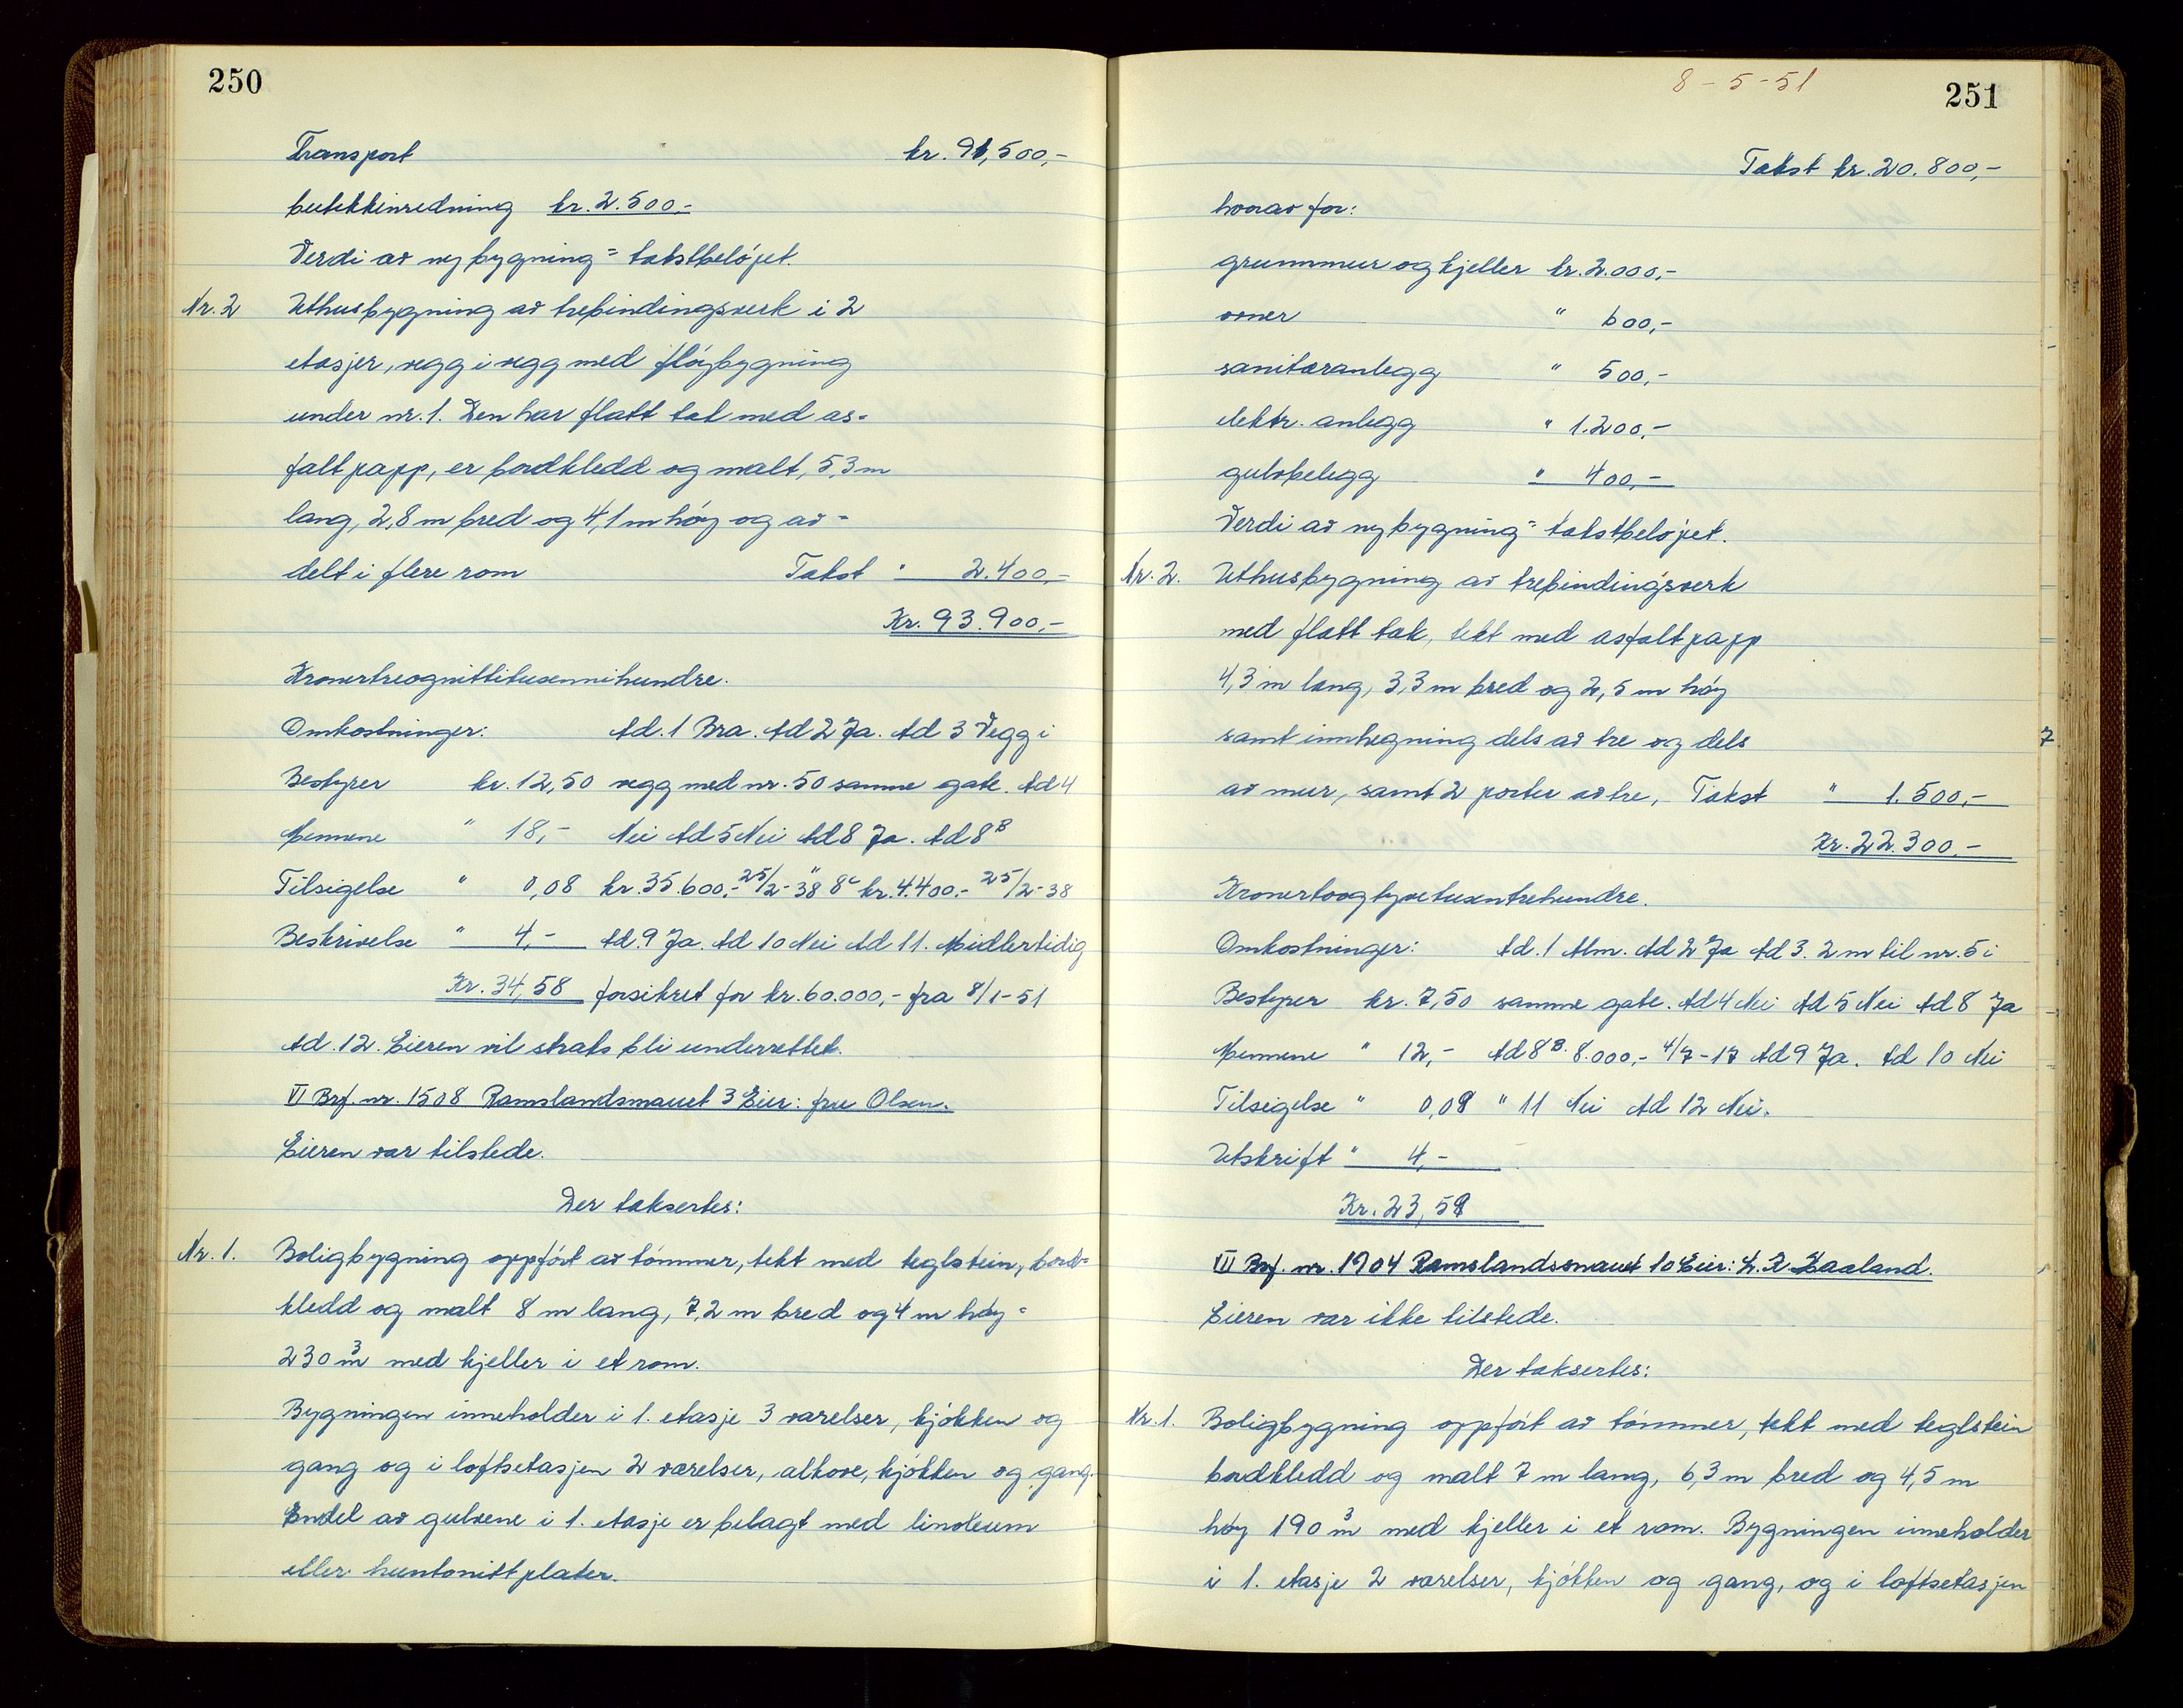 250
Transport kr. 91,500,-
butikkinredning kr. 2.500.-
Verdi av ny bygning = takstbeløpet.
Nr. 2 Uthusbygning av trebindingsverk i 2
etasjer, vegg i vegg med fløybygning
under nr. 1. Den har flatt tak med as-
faltpapp, er bordkledd og malt, 5,3 m
lang, 2,8 m bred og 4,1 m høy og av-
delt i flere rom Takst " 2.400,-
Kr. 93.900,-
Kronertreognittitusennihundre.
Omkostninger: Ad. 1 Bra. Ad 2 Ja. Ad 3 Vegg i
Bestyrer kr. 12,50 vegg med nr. 50 samme gate. Ad 4
Mennene " 18,- Nei Ad 5 Nei Ad 8 Ja. Ad 8B
Tilsigelse " 0,08 kr. 35.600.- 25/2-38 " 8c kr. 4.400.- 25/2-38
Beskrivelse " 4,- Ad. 9 Ja. Ad 10 Nei Ad 11. Midlertidig
Kr. 34,58 forsikret for kr. 60.000,- fra 8/1-51
Ad. 12. Eieren vil straks bli underrettet.
VI Brf. nr. 1508 Ramslandsmauet 3 Eier: fru Olsen.
Eieren var tilstede.
Der taksertes:
Nr. 1. Boligbygning oppført av tømmer, tekt med teglstein, bord-
kledd og malt 8 m lang, 7,2 m bred og 4 m høy =
230 m3 med kjeller i et rom.
Bygningen inneholder i 1. etasje 3 værelser, kjøkken og
gang og i loftsetasjen 2 værelser, alkove, kjøkken og gang.
Endel av gulvene i 1. etasje er belagt med linoleum
eller huntonitt plater.
8-5-51
251
Takst kr. 20.800,-
hvorav for:
grunnmur og kjeller kr. 2.000,-
ovner " 600,-
sanitæranlegg " 500,-
elektr. anlegg " 1.200,-
gulvbelegg " 400,-
Verdi av ny bygning = takstbeløpet.
Nr. 2. Uthusbygning av trebindingsverk
med flatt tak, tekt med asfaltpapp
4,3 m lang, 3,3 m bred og 2,5 m høy
samt innhegning dels av tre og dels
av mur, samt 2 porter av tre, Takst " 1.500,-
Kr. 22.300.-
Kronertoogtyvetusentrehundre.
Omkostninger: Ad. 1 Alm. Ad 2 Ja Ad 3. 2 m til nr. 5 i
Bestyrer kr. 7,50 samme gate. Ad 4 Nei Ad 5 Nei Ad 8 Ja
Mennene " 12,- Ad 8B. 8.000,- 4/7-17 Ad 9 Ja. Ad 10 Nei
Tilsigelse " 0,08 " 11 Nei Ad 12 Nei.
Utskrift " 4,-
Kr. 23,58
VII Brf. nr. 1904 Ramslandsmauet 10 Eier:
Eieren var ikke tilstede.
Der taksertes:
Nr. 1. Boligbygning oppført av tømmer, tekt med teglstein
bordkledd og malt 7 m lang, 6,3 m bred og 4,5 m
høy 190 m3 med kjeller i et rom. Bygningen inneholder
i 1. etasje 2 værelser, kjøkken og gang, og i loftsetasjen